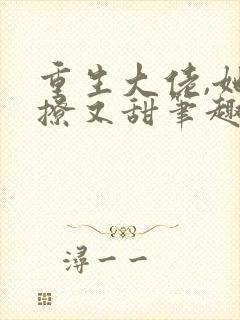 重生大佬,她
撩又甜笔趣
浔一一